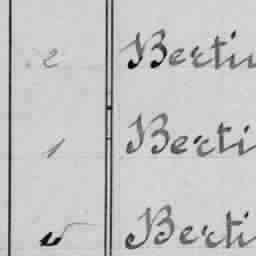 2 Berti
1 Berti
Berti